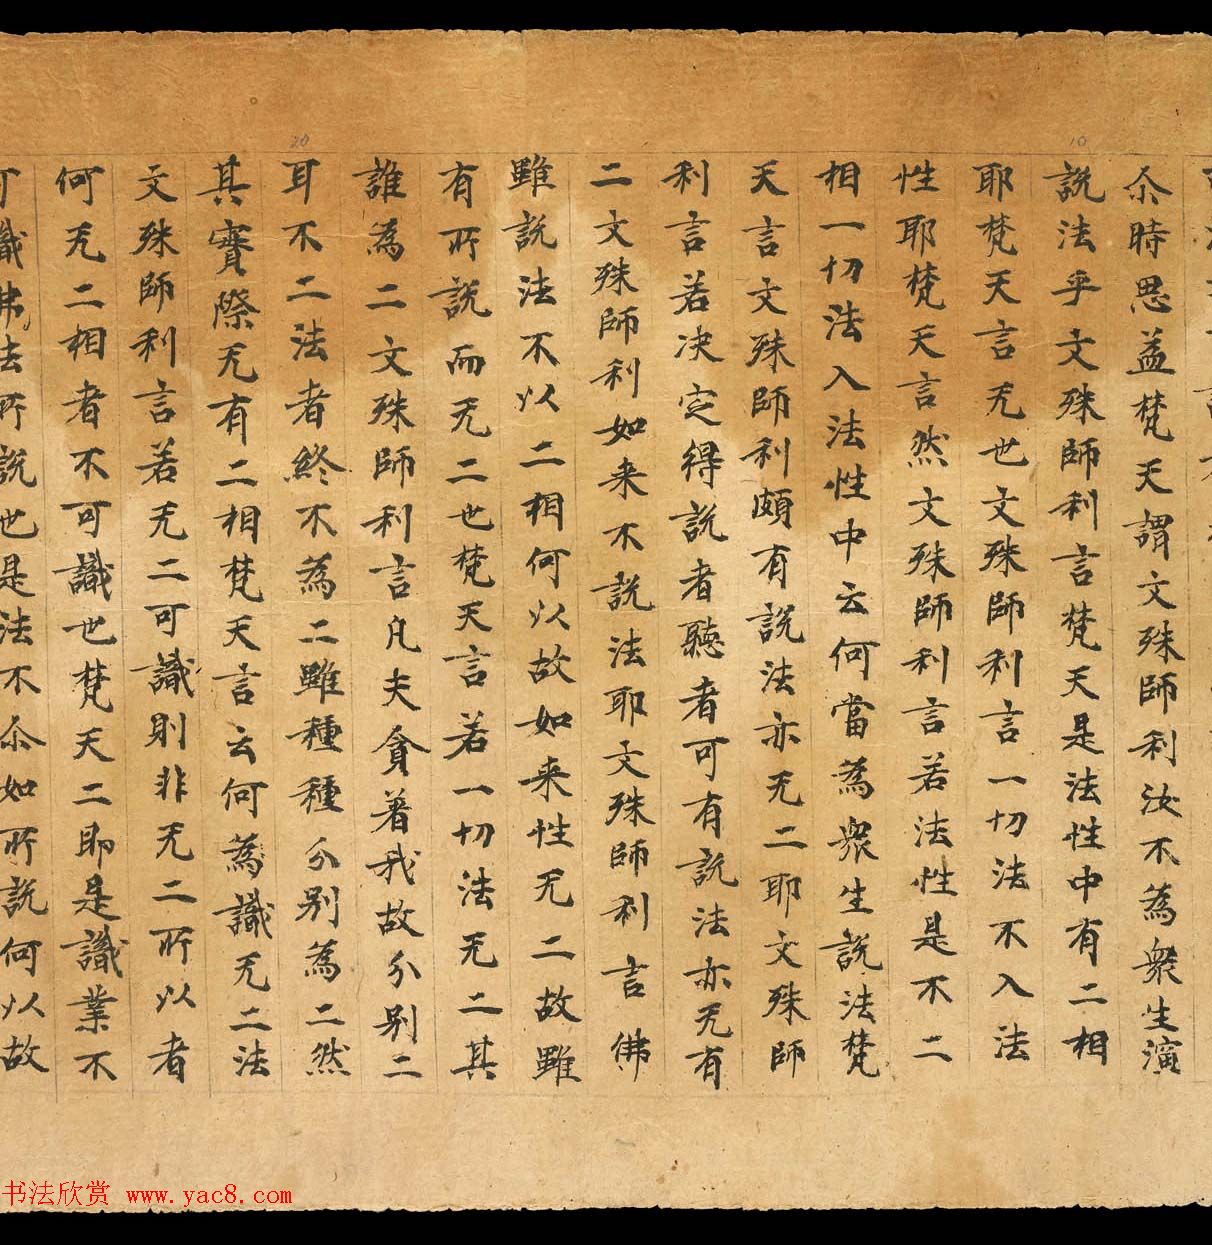 尒時思益梵天謂文殊師利汝不為衆生演
説法乎文殊師利言梵天是法性中有二相
耶梵天言无世文殊師利言一切法不入法
性耶梵天言然文殊師利言若法性是不二
相一切法入法性中云何當為衆生説法梵
天言文殊師利頗有説法亦无二耶文殊師
利言若决定得説者聽者可有説法亦无有
二文殊師利如来不説法耶文殊師利言佛
雖説法不以二相何以故如来性无二故雖
有所説而无二世梵天言若一切法无二其
誰為二文殊師利言凡夫貪著我故分别二
耳不二法者終不為二雖種種分别為二然
其實際无有二相梵天言云何為識无二法
文殊師利言若无二可識則非无二所以者
何无二相者不可識世梵天二即是識業不
可識佛法所説世是法不尒如所説何以故
20
10
书法欣赏 www.yac8.com